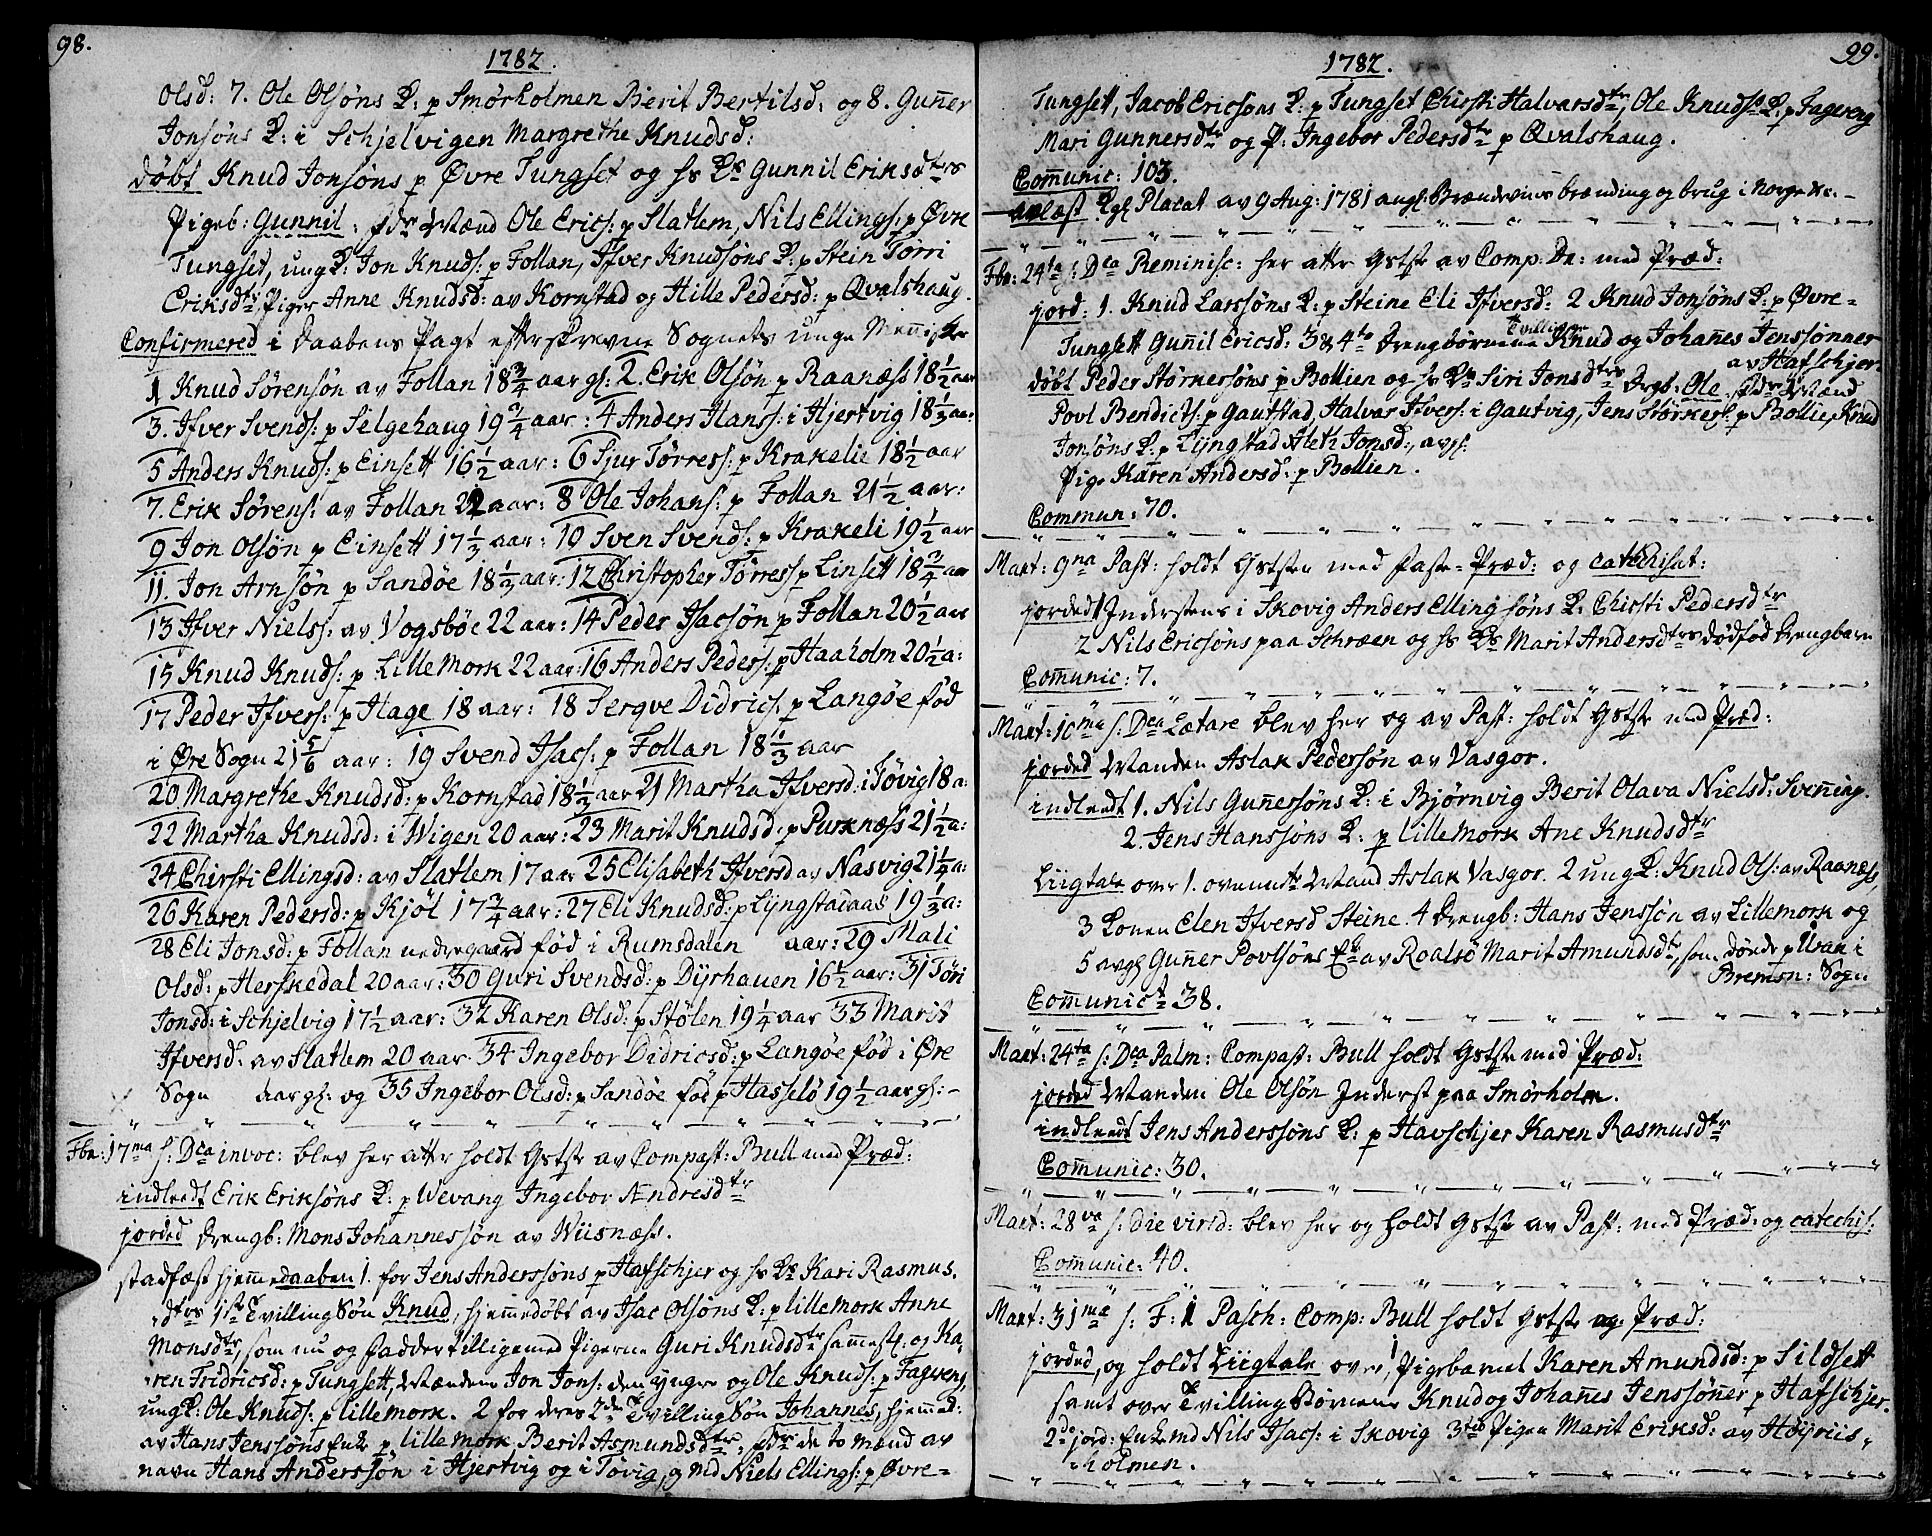 98.
1782.
Olsd: 7. Ole Olsøns K: p Smørholmen Berit Bertilsd: og 8. Gun̄er
Jonsøns K: i Schjelvigen Margrethe Knudsd:
døbt Knud Jonsøns p Øvre Tungset og hs Ks Gunnil Eriksdtrs
Pigeb: Gunnil: Fdr Mænd Ole Erics: p Slatlem, Nils Ellings: p Øvre
Tungset, ung K: Jon Knuds: p Follan, Ifver Knudsøns K: p Stein Tørri
Eriksdtr, Piger Anne Knudsd: av Kornstad og Hille Pedersd: p Qvalshaug.
Confirmered i Daabens Pagt efterskrevne Sognets unge Men̄isker
1 Knud Sørensøn av Follan 18 3/4 aar gl: 2. Erik Olsøn p Raanæss 18 1/2 aar
3. Ifver Svends: p Selgehaug 19 1/4 aar: 4 Anders Hans: i Hjertvig 18 1/3 aa:
5 Anders Knuds: p Einsett 16 1/2 aar: 6 Sjur Tørress: p Krakelie 18 1/2 aar
7. Erik Sørens: av Follan 22 aar: 8 Ole Johans: p Follan 21 1/2 aar:
9 Jon Olsøn p Einsett 17 1/3 aar: 10 Sven Svends: p Krakeli 19 1/2 aar
11. Jon Arnsøn p Sandøe 18 1/3 aar: 12 Christopher Tørress p Linsett 18 3/4 aar
13 Ifver Niels: av Vogsbøe 22 aar: 14 Peder Isacsøn p Follan 20 1/2 aar
15 Knud Knuds: p Lillemork 22 aar: 16 Anders Peders: p Haaholm 20 1/2 a:
17 Peder Ifvers: p Hage 18 aar: 18 Sergve Didrics: p Langøe fød
i Øre Sogn 21 5/6 aar: 19 Svend Isacs: p Follan 18 1/3 aar
20 Margrethe Knudsd: p Kornstad 18 1/2 aar 21 Martha Ifversd: i Tøvig 18 a:
22 Martha Knudsd: i Wigen 20 aar: 23 Marit Knudsd: p Purknæss 21 1/2 a:
24 Chirsti Ellingsd: av Slatlem 17 aar 25 Elisabeth Ifversd av Nasvig 21 1/4 a:
26 Karen Pedersd: p Kjøl 17 3/4 aar: 27 Eli Knudsd: p Lyngstadaas 19 1/3 a:
28 Eli Jonsd: p Follan nedregaard fød i Rumsdalen aar: 29 Mali
Olsd: p Herskedal 20 aar: 30 Guri Svendsd: p Dyrhauen 16 1/2 aar: 31 Tøri
Jonsd: i Schjelvig 17 1/2 aar: 32 Karen Olsd: p Stølen 19 1/4 aar 33 Marit
Ifversd: av Slatlem 20 aar 34 Ingebor Didricsd: p Langøe fød i Øre
Sogn aar gl: og 35 Ingebor Olsd: p Sandøe fød p Hasselø 19 1/2 aar gl: -
Fbr: 17ma s: Dca invoc: blev her atter holdt Gstste av Compast: Bull med Præd:
indleedt Erik Eriksøns K: p Wevang Ingebor Andresdtr
jorded Drengb: Mons Johannessøn av Wiisnæss.
stadfæst hjem̄edaaben 1. for Jens Anderssøns p Hafschjer og hs Ks Kari Rasmus.
dtrs 1ste Tvilling Søn Knud, hjem̄edøbt av Isac Olsøns K: p Lillemork Anne
Monsdtr, som nu og Fadder tilligemed Pigerne Guri Knudsdtr sam̄est: og Ka,
ren Fridricsd: p Tungsett, Mændene Jon Jons: den yngre og Ole Knuds: p Fagereng,
ung K: Ole Knuds: p Lillemork. 2 for deres 2den Tvilling Søn Johannes, hjem̄ed:
av Hans Jenssøns Enke p Lillemork Berit Asmundsdtr, Fdr de to mænd av
navn Hans Anderssøn i Hjertvig og i Tøvig, g Md Niels Ellings: p Øvre=
99.
1782.
Tungsett, Jacob Ericsøns K: p Tungset Chirsti Halvarsdtr, Ole Knuds: K: p Fagereng
Mari Gunnersdtr og P: Ingebor Pedersdtr p Qvalshaug.
Com̄unic: 103.
anlæst Kgl Placat av 9 Aug: 1781 angl: Brændevins brænding og brug i Norge etc. -
Fbr: 24ta s: Dca Reminisc: her atter Gstste av Comp: De: med Præd:
jord: 1. Knud Larssøns K: p Steine Eli Ifversd: 2 Knud Jonsøns K: p Øvre=
Tungsett Gun̄il Ericsd: 3 & 4to Tvilling Drengbørnene Knud og Johan̄es Jenssønner
av Hafschjer.
døbt Peder Størkersøns p Bollien og hs Ks Siri Jonsdtrs Drgb: Ole, Fdr Mænd
Povl Bendicts: p Gautstad, Halvar Ifvers: i Gautvig, Jens Størkers: p Bollie, Knud
Jonsøns K: p Lyngstad Aleth Jonsd:, avgl:
Pige Karen Andersd: p Bollien.
Commun: 70.
Mart: 9na Past: holdt Gstsen med Faste=Præd: og catechisat:
jorded 1 Inderstens i Skovig Anders Ellingsøns K: Chirsti Pedersdtr
2 Nils Ericsøns paa Schræen og hs Ks Marit Andersdtrs dødfød Drengbarn
Com̄unic: 7.
Mart: 10ma s: Dca Lætare blev her og av Past: holdt Gstste med Præd:
jorded Manden Aslak Pedersøn av Vasgor.
indleedt 1. Nils Gun̄ersøns K: i Bjørnvig Berit Olava Nielsd: Sven̄ing.
2. Jens Hanssøns K: p Lillemork Ane Knudsdtr
Liigtale over 1. ovenndte Mand Aslak Vasgor. 2 ung K: Knud Ols: av Raanæss
3 Konen Elen Ifversd Steine. 4 Drengb: Hans Jenssøn av Lillemork og
5 avgl Gun̄er Povlsøns Eke av Roalsø Marit Amundsdtr, som døde p Uran i
Bremsn: Sogn
Com̄unicte 38.
Mart: 24ta s: Dca Palm: Compast: Bull holdt Gstste med Præd:
jorded Manden Ole Olsøn Inderst paa Smørholm.
indleedt Jens Anderssøns K: p Havschjer Karen Rasmusdtr
Com̄unic: 30.
Mart: 28va s: die virid: blev her og holdt Gstste av Past: med Præd: og catechis:
Com̄unic: 40.
Mart: 31ma s: F: 1 Pasch: Comp: Bull holdt Gstste og Præd:
jorded, og holdt Liigtale over, 1 Pigebarnet Karen Amundsd: p Sildsett
samt over Tvilling Børnene Knud og Johan̄es Jenssøn̄er p Hafschjer.
2do jord: Enkemd Nils Isacs: i Skovig 3tio Pigen Marit Eriksd: av Høyriis,
holmen.